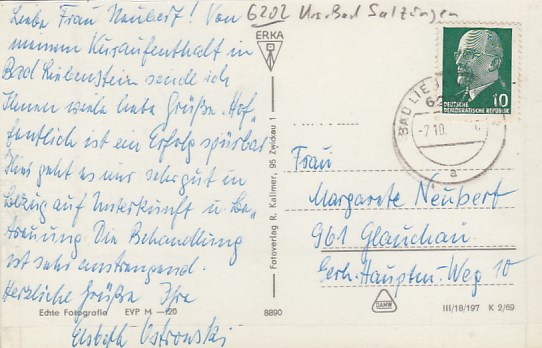 Liebe Frau Neubert! Von
meinem Kuraufenthalt in
Bad Liebenstein sende ich
Ihnen viele liebe Grüße. Hof„
fentlich ist ein Erfolg spürbar
Hier geht es uns sehr gut in
Bezug auf Unterkunft u. Be„
treuung. Die Behandlung
ist sehr anstrengend.
Herzliche Grüße Ihre
Elsbeth Ostrowski
6202 Krs. Bad Salzungen
ERKA
Fotoverlag R. Kallmer, 95 Zwickau 1
Echte Fotografie EVP M —,20
8890
DEUTSCHE
DEMOKRATISCHE REPUBLIK
10
BAD LIE
-7.10.
a
Frau
Margarete Neubert
961 Glauchau
Gerh.-Hauptm.-Weg 10
DAHW
III/18/197 K 2/69